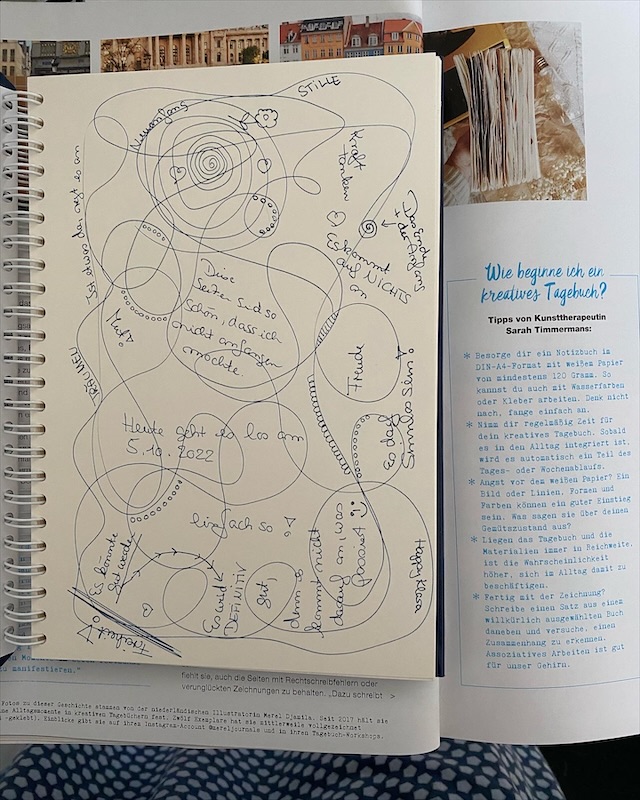 STILLE
Neuanfang
Kraft
tanken
Das Ende
+ der Anfang
Es kommt
auf NICHTS
an
Ist etwas
TRÄUMEN
Mut!
Diese
Seiten sind so
schön, dass ich
nicht anfangen
möchte.
Freude
Es darf
Sinnlos Sein!
Heute geht es los am
5.10.2022
Einfach so!
Es könnte
gut werden
Freiheit!
Es wird
DEFINITIV
gut,
denn es
kommt nicht
darauf an, was
passiert
Happy
Wie beginne ich ein
kreatives Tagebuch?
Tipps von Kunsttherapeutin
Sarah Timmermans:
* Besorge dir ein Notizbuch im
DIN-A4-Format mit weißem Papier
von mindestens 120 Gramm. So
kannst du auch mit Wasserfarben
oder Kleber arbeiten. Denk nicht
nach, fange einfach an.
* Nimm dir regelmäßig Zeit für
dein kreatives Tagebuch. Sobald
es in den Alltag integriert ist,
wird es automatisch ein Teil des
Tages- oder Wochenablaufs.
* Angst vor dem weißen Papier? Ein
Bild oder Linien, Formen und
Farben können ein guter Einstieg
sein. Was sagen sie über deinen
Gemütszustand aus?
* Liegen das Tagebuch und die
Materialien immer in Reichweite,
ist die Wahrscheinlichkeit
höher, sich im Alltag damit zu
beschäftigen.
* Fertig mit der Zeichnung?
Schreibe einen Satz aus einem
willkürlich ausgewählten Buch
daneben und versuche, einen
Zusammenhang zu erkennen.
Assoziatives Arbeiten ist gut
für unser Gehirn.
zu manifestieren."
fiehlt sie, auch die Seiten mit Rechtschreibfehlern oder
verunglückten Zeichnungen zu behalten. „Dazu schreibt >
Fotos zu dieser Geschichte stammen von der niederländischen Illustratorin Merel Djamila. Seit 2017 hält sie
ne Alltagsmomente in kreativen Tagebüchern fest. Zwölf Exemplare hat sie mittlerweile vollgezeichnet
-geklebt). Einblicke gibt sie auf ihrem Instagram-Account @mereljournals und in ihren Tagebuch-Workshops.